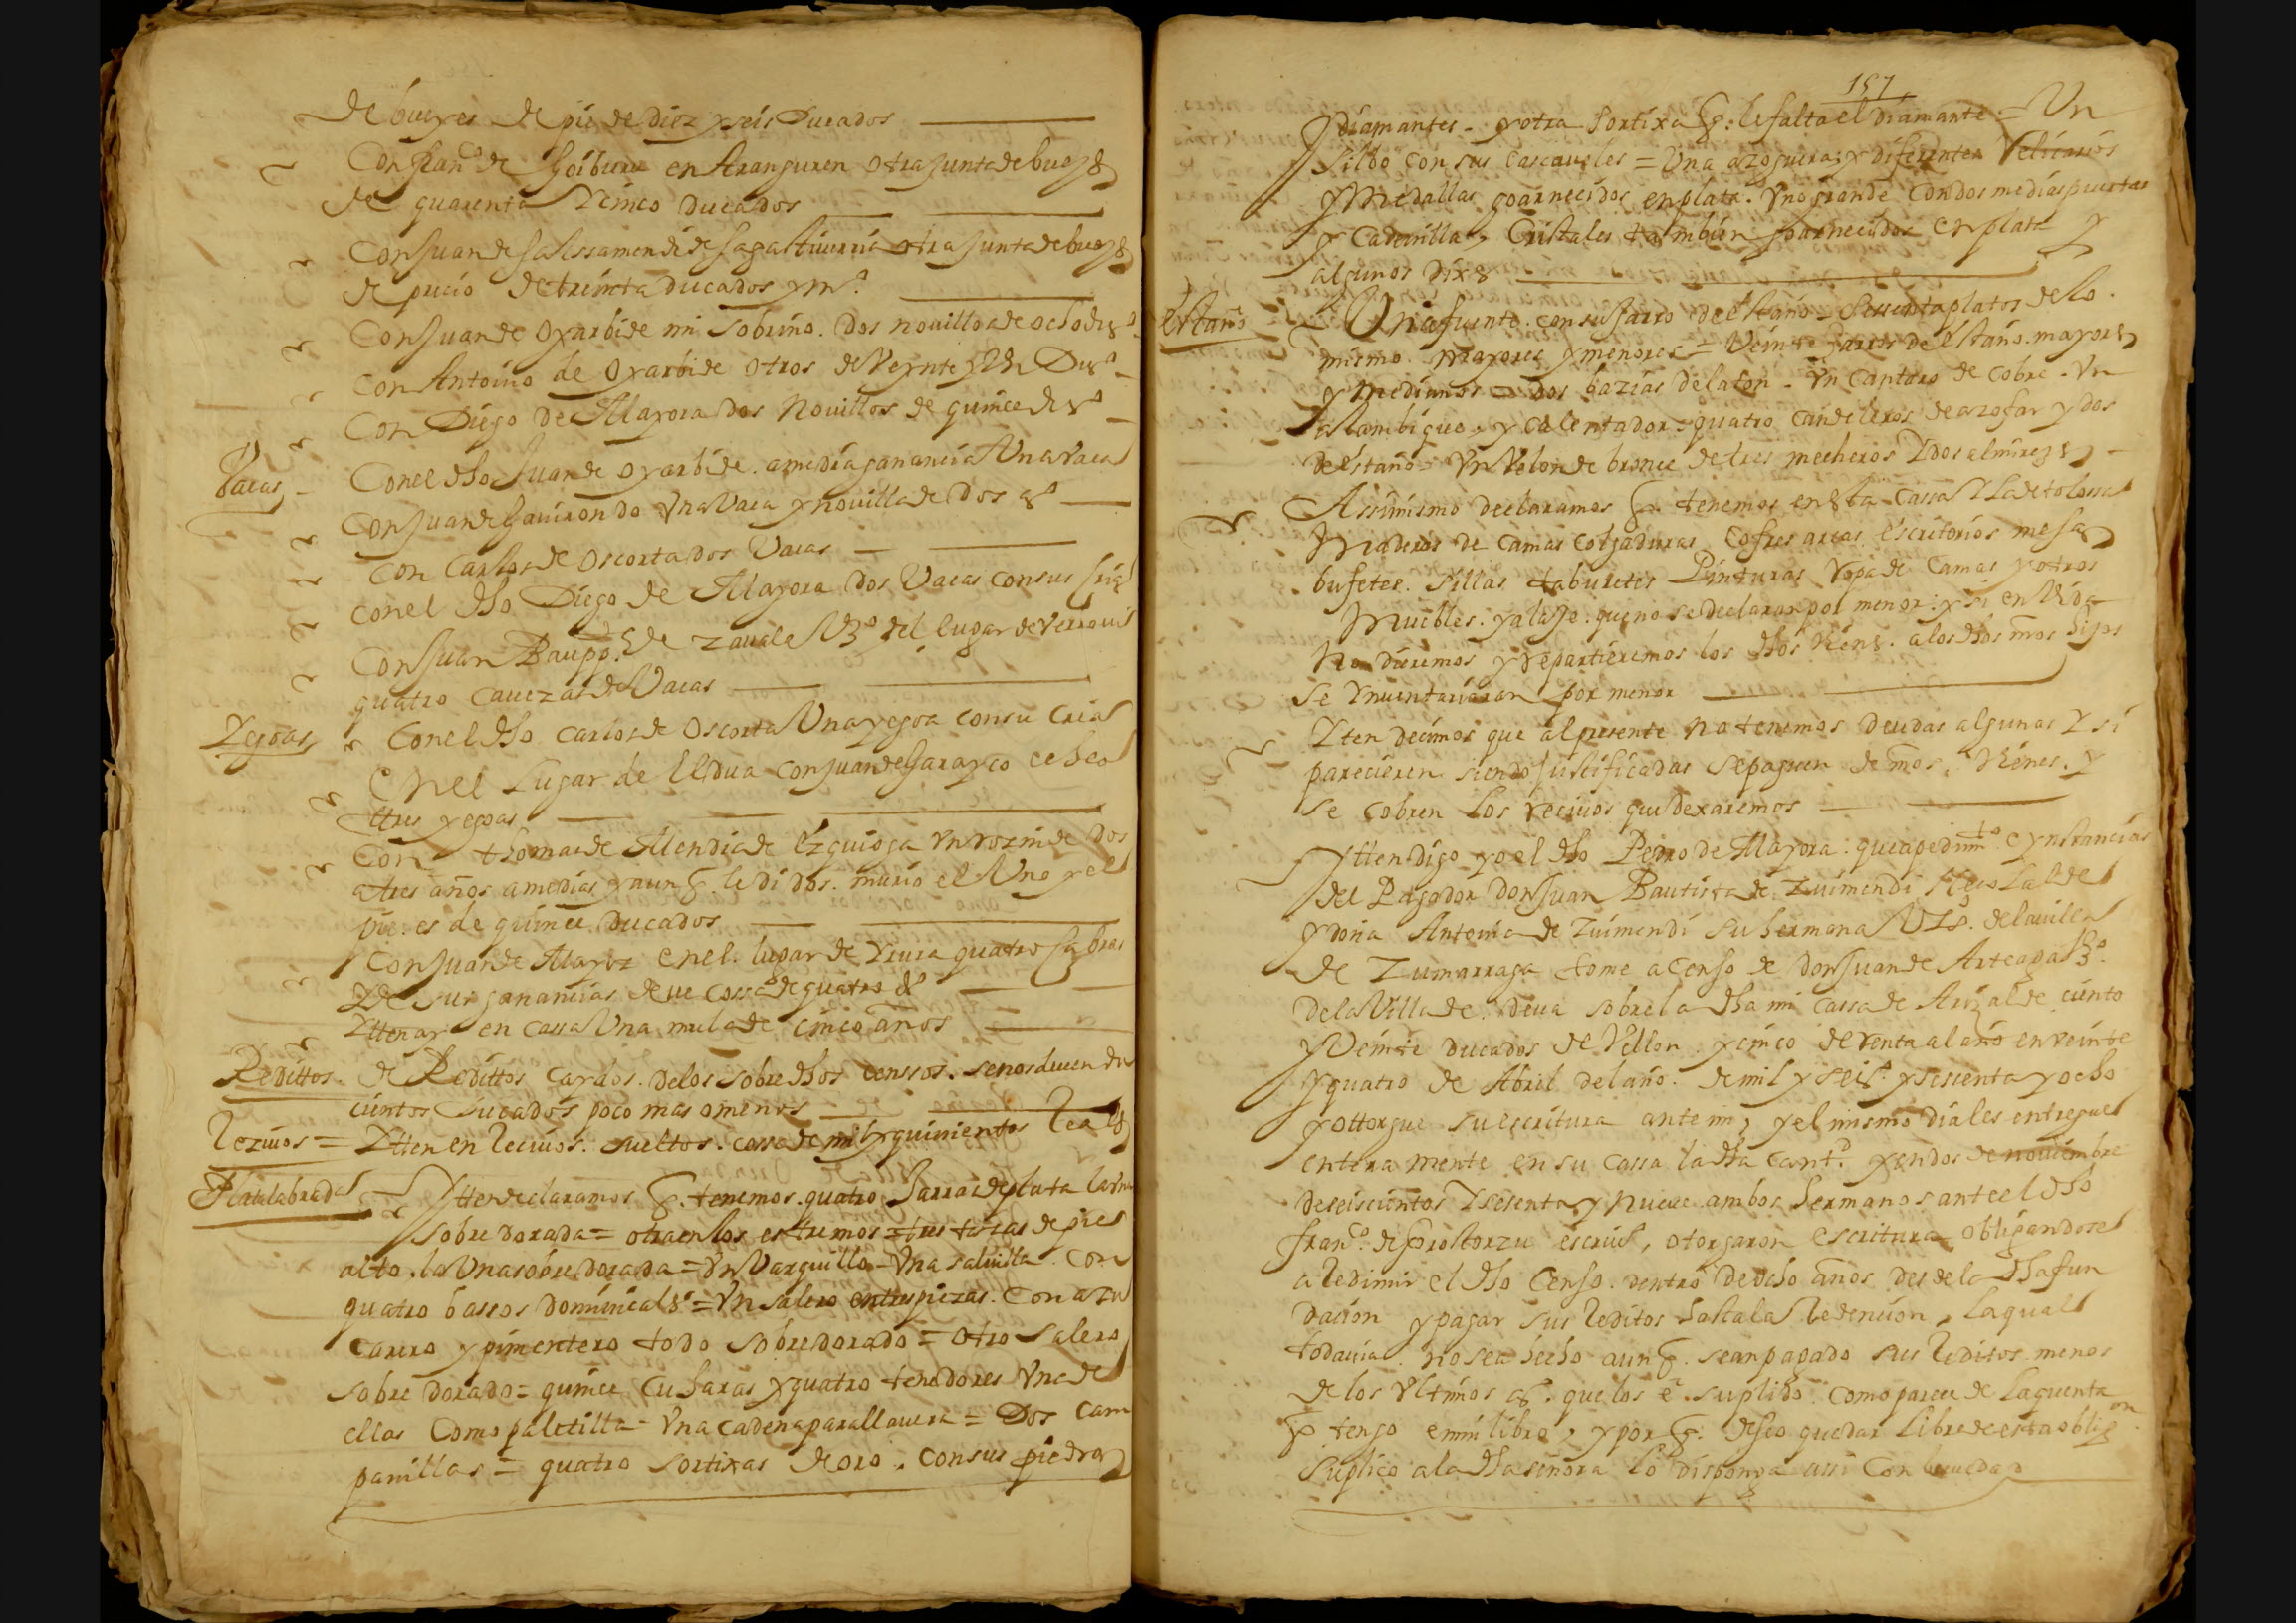 de bueyes de pie de diez y seis Ducados
Con fran.co de Goiburu en Aranguren otra junta de bueys
de quarenta Y cinco ducados
Con Juan de Salssamendi de Sagastiverria otra junta de bueys
de precio de treinta ducados y m.o
Con Juan de Oyarbide mi sobrino. dos nouillos de ocho dus.o
Con Antonio de Oyarbide otros de Veynte y Un Dus.o
Con Diego de Alayora dos Nouillos de quince dus.o
Vacas
Con el dho Juan de oyarbide. a media ganancia Una Vaca
Con Juan de Gauirondo Vna Vaca y nouilla de dos as.o
Con Carlos de Oscorta dos Vacas
Con el dho Diego de Alayora dos Vacas con sus crias
Con Juan Baup.ta de Zauala Vz.o del lugar de
quatro Cauezas de Vacas
Yegoas
Con el dho Carlos de Oscorta Una yegoa con su cria
En el Lugar de Eldua con Juan de Garayco echea
tres yegoas
Con thomas de Mendia de Ezquioga Vn rozin de dos
a tres años a medias y aun q. le di dos. murio el Uno y el
viue es de quince ducados
Con Juan de Alayoz en el lugar de Yrura quatro cabras
Y de sus ganancias deue cossa de quatro ds.o
Ytten ay en cassa Una mula de cinco años
Redittos.
de Redittos caydos. de los sobre dhos censsos. se nos deuen du
cientos Ducados poco mas o menos
Reziuos =
Ytten en Reciuos. sueltos. cossa de mil y quinientos Reales
Plata labrada
Ytten declaramos q. tenemos. quatro Jarras de plata la Vna
sobre dorada = otra en los estremos = tres tazas de pie
alto. la Una sobre dorada = Vn Varquillo = Vna saluilla con
quatro bassos dominicales = Vn salero entres piezas. con azu
carero y pimentero todo sobredorado = otro salero
sobre dorado = quince Cucharas y quatro tenedores Vna de
ellas Como paletilla = Vna cadena para llauera = Dos Cam
panillas = quatro sortixas de oro. con sus piedras
157
y diamantes = y otra sortixa q. le falta el diamante = Un
silbo con sus cascaueles = Una azoguera y diferentes Relicarios
y Medallas goarnecidos en plata. Vno grande con dos medias puertas
y Cadenilla, Cristales tambien goarnecidos en plata y
algunos dixs
estaño
Una fuente. con su Jarro de estaño = Sessenta platos de lo
mismo mayores y menores = Veinte Jarros de estaño. mayores
y medianos = dos bazias de laton = Vn Cantaro de cobre = Vn
alambique, y Calentador = quatro candeleros de azofar y dos
de estaño = Vn Velon de bronce de tres mecheros Y dos almirezes
Assimismo declaramos q. tenemos en esta Cassa Y la de tolossa
Maderas de camas colgaduras Cofres arcas escritorios mesas
bufetes. sillas taburetes Pinturas ropa de Camas y otros
Muebles. y alaje. que no se declaran por menor: y si en Vida
No dieremos y repartieremos los dhos Vienes. a los dhos nros hijos
se ynuentariaran por menor
Yten decimos que al presente no tenemos deudas algunas Y si
parecieren siendo Justificadas se paguen de nros. Vienes. y
se cobren los reciuos que dexaremos
Ytten digo yo el dho Pedro de Alayora: que a pedim.to e ynstancias
del Pagador don Juan Bautista de Zuimendi
y doña Antonia de Zuimendi su hermana Vzs. de la villa
de Zumarraga tome a Censo de don Juan de Arteaga Vz.o
de la Villa de. Deua sobre la dha mi Cassa de Arizalde. ciento
y Veinte ducados de Vellon. y cinco de renta al año en veinte
y quatro de Abril del año. de mil y seis.os y sesenta y ocho
y ottorgue su escritura ante mi, y el mismo dia les entregue
entera mente en su Cassa la dha cant.d y en dos de nouiembre
de seiscientos Y sesenta y Nueue ambos hermanos ante el dho
fran.co de escriu.o, otorgaron escritura obligandose
a redimir el dho Censo. dentro de ocho años. desde la dha fun
dacion y pagar sus reditos hasta la redencion, la qual
todauia. no se a hecho aun q. se an pagado sus reditos menos
de los vltimos as. que los e. suplido Como parece de la quenta
q tengo en mi libro, y por q. deseo quedar Libre de esta oblig.on
Suplico a la dha señora lo disponga assi con breuedad